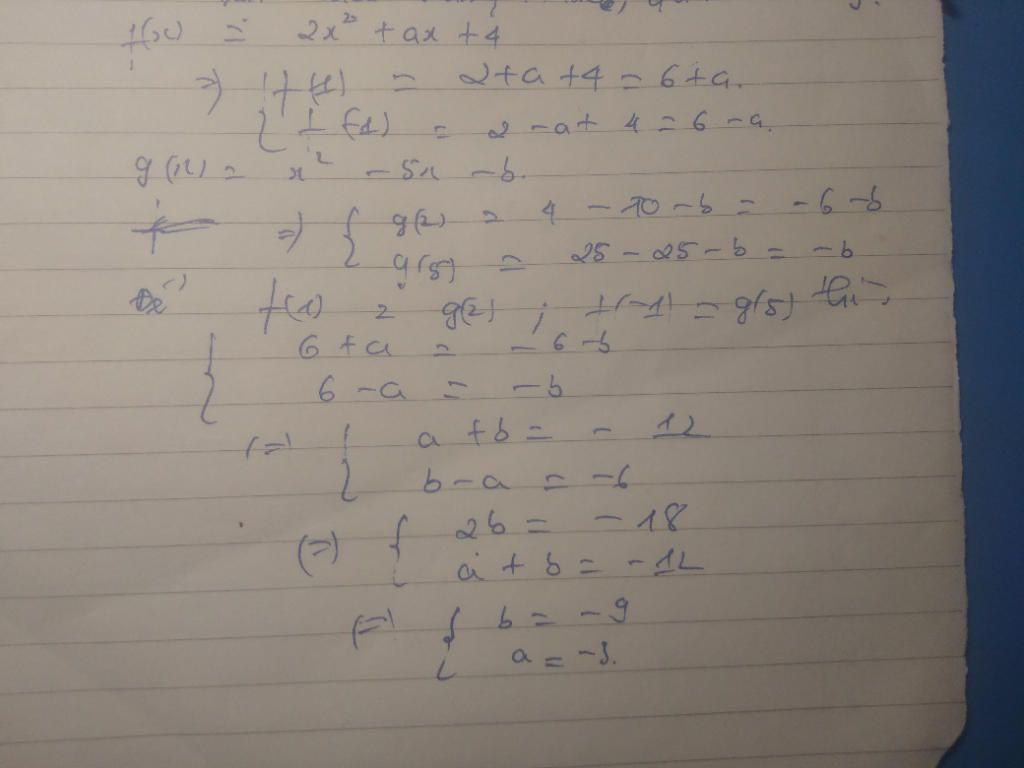 f(x) = 2x² + ax + 4
=> { f(1) = 2+a+4 = 6+a.
{ f(-1) = 2-a+4 = 6-a.
g(x) = x² - 5x - b.
=> { g(2) = 4 - 10 - b = -6-b
{ g(5) = 25 - 25 - b = -b
Để f(1) = g(2) ; f(-1) = g(5) thì
{ 6+a = -6-b
6-a = -b
(=) { a+b = -12
{ b-a = -6
(=) { 2b = -18
{ a+b = -12
(=) { b = -9
{ a = -3.